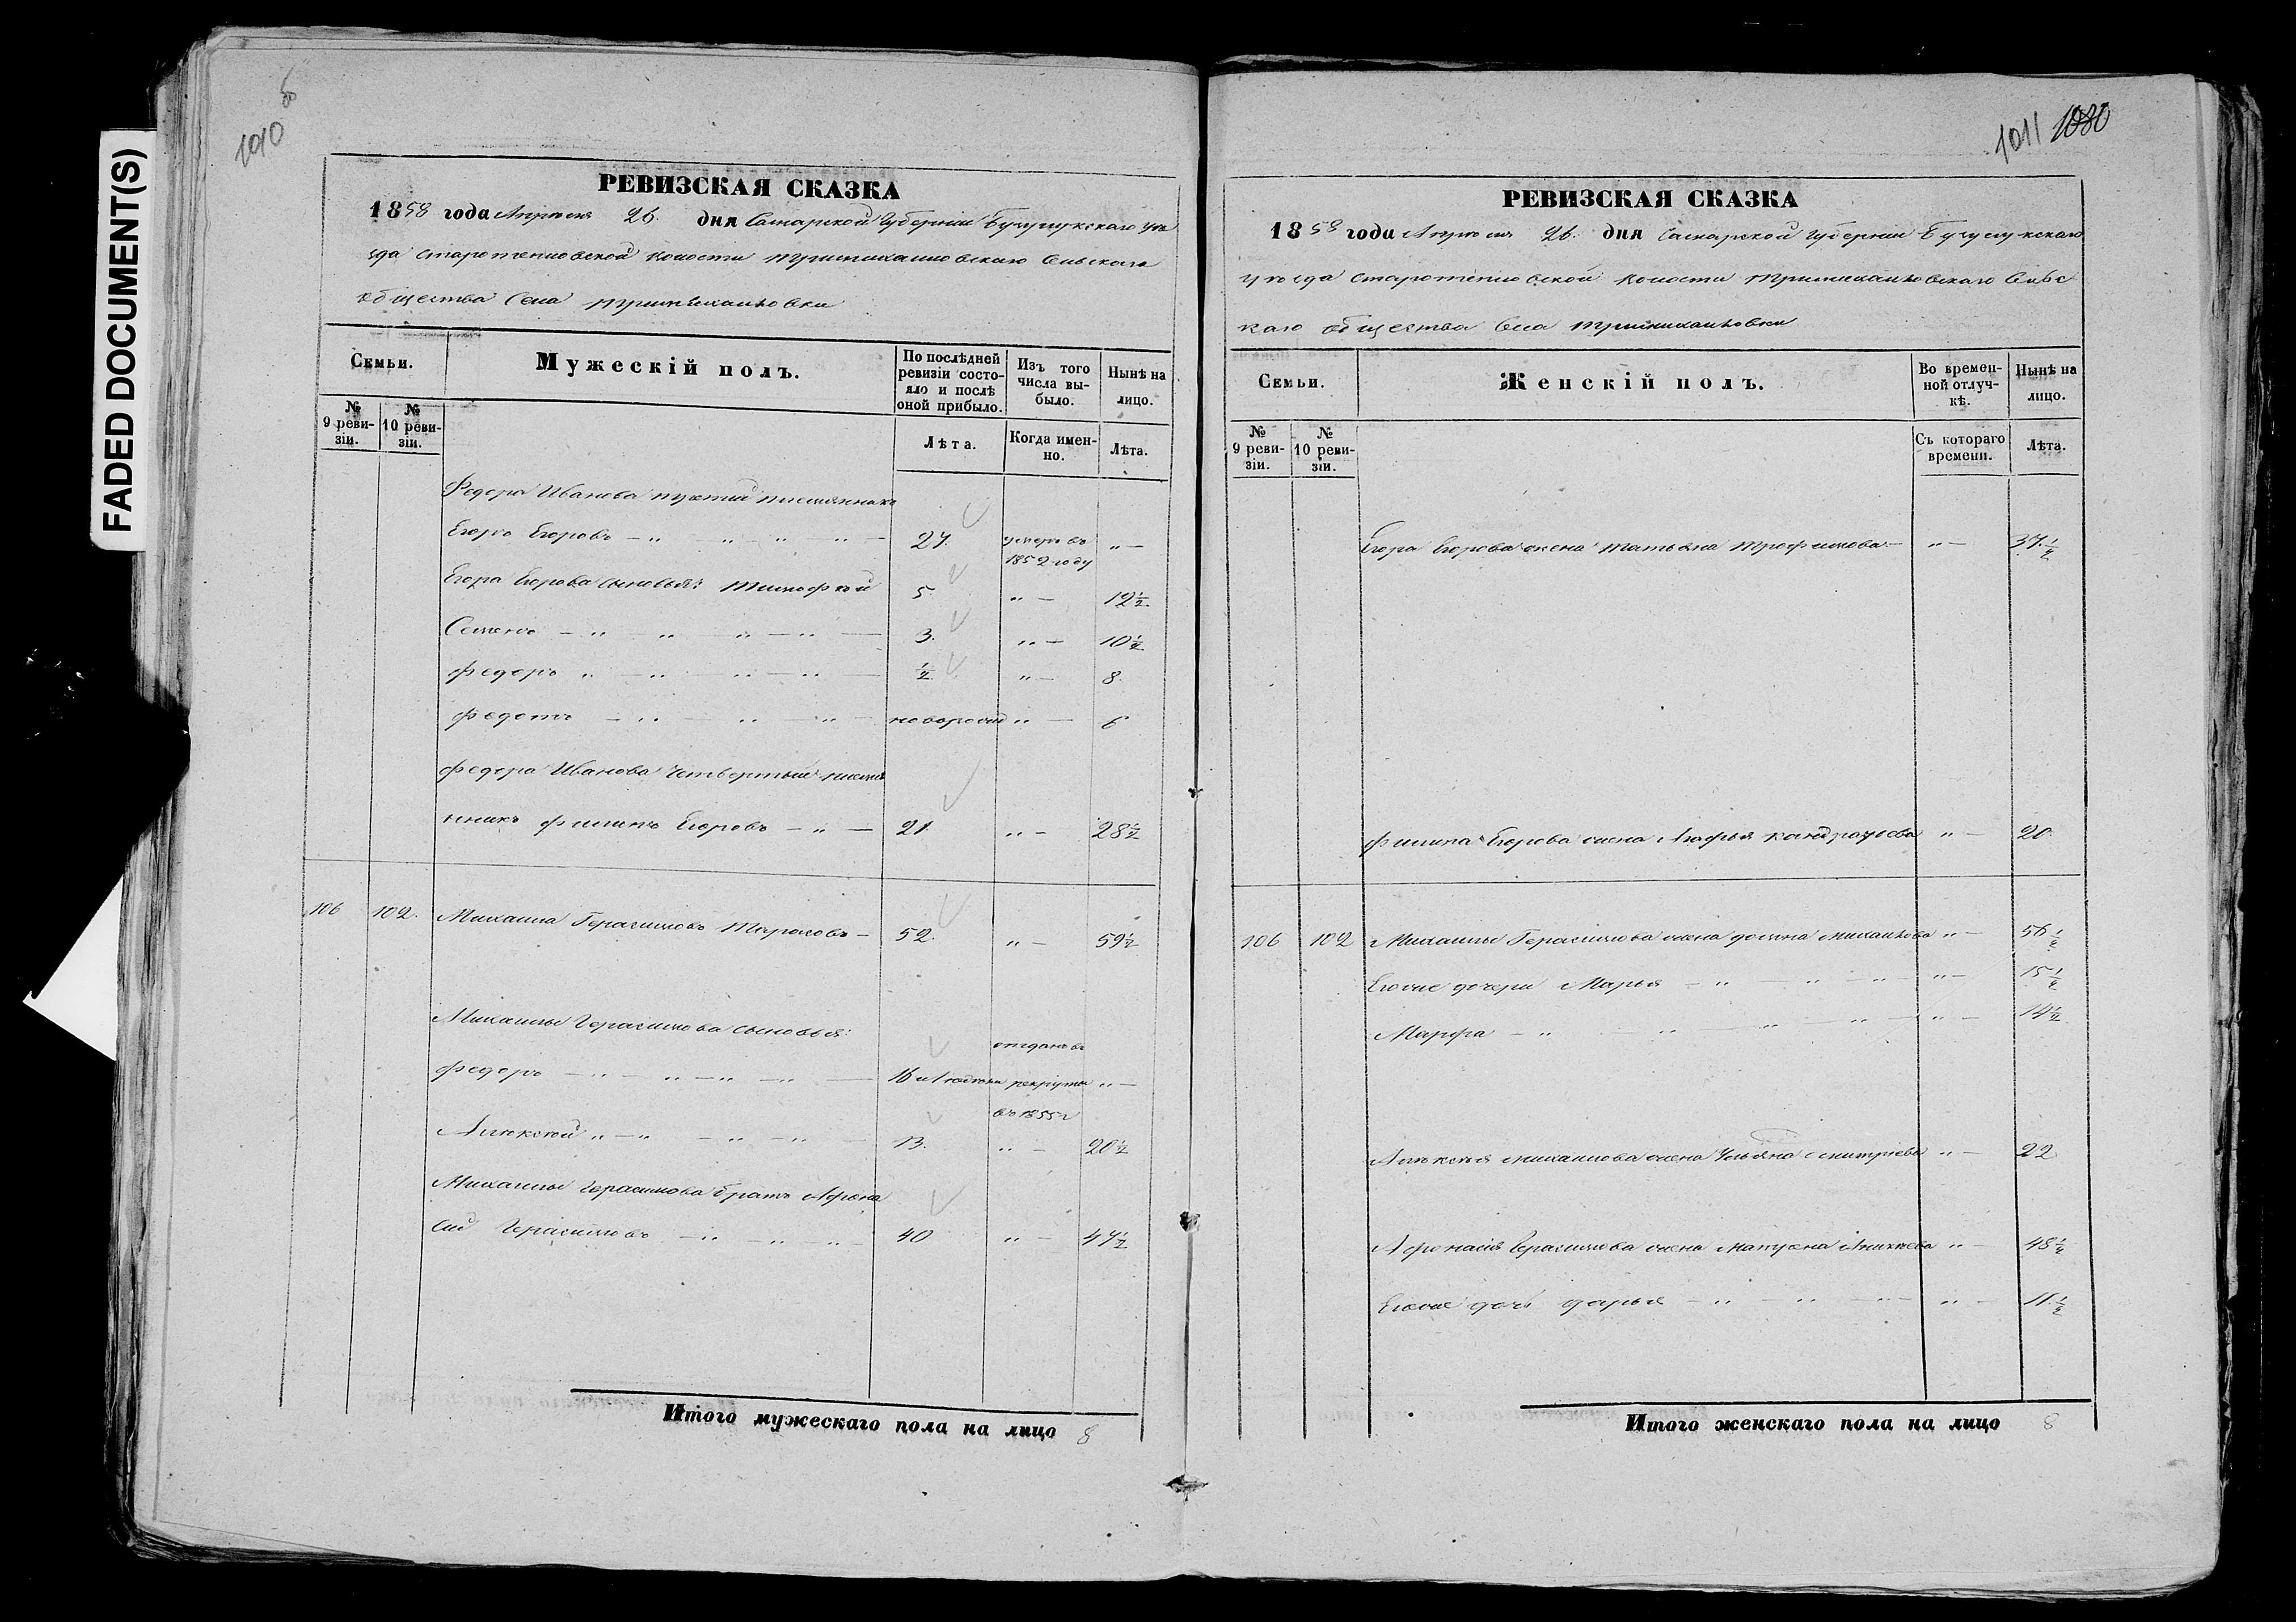 FADED DOCUMENT(S)
1010
РЕВИЗСКАЯ СКАЗКА
1858 года Апреля 26. дня Самарской Губернии Бузулукскаго уѣ
зда Старотепловской волости Трımихайловскаго Сельскаго
общества Села
Семьи.
Мужескій полъ.
По послѣдней ревизіи состояло и послѣ оной прибыло.
Изъ того числа выбыло.
Нынѣ на лицо.
№ 9 ревизіи.
№ 10 ревизіи.
Лѣта.
Когда именно.
Лѣта.
Федора Иванова третий племянникъ
Егоръ Егоровъ 27. умеръ въ 1852 году
Егора Егорова сыновья: Тимофей 5 12½
Семенъ 3. 10½
Федоръ ½ 8.
Федотъ новорожд 6
Федора Иванова четвертый племя
нникъ Филипъ Егоровъ 21. 28½
106 102. Михаила Герасимовъ Тарасовъ 52. 59½
Михайлы Герасимова сыновья:
Федоръ 16 отданъ въ рекруты въ 1855 г
Алексей 13. 20½
Михайлы Герасимова братъ Афона
сий Герасимовъ 40 47½
Итого мужескаго пола на лицо 8
1011 1080
РЕВИЗСКАЯ СКАЗКА
1858 года Апреля 26. дня Самарской Губернии Бузулукскаго
уѣзда Старотепловской волости Сельс
каго общества Села
Семьи.
Женскій полъ.
Во временной отлучкѣ.
Нынѣ на лицо.
№ 9 ревизіи.
№ 10 ревизіи.
Съ котораго времени.
Лѣта.
Егора Егорова жена Татьяна Трофимова 37½
Филипа Егорова жена Агафья Кандратьева 20
106 102 Михайлы Герасимова жена Домна Михайлова 56½
Егоже дочери Марья 15½
Марфа 14½
Алексея Михайлова жена Ульяна Дмитриева 22
Афонасия Герасимова жена Матрена 48½
Егоже дочь Дарья 11½
Итого женскаго пола на лицо 8